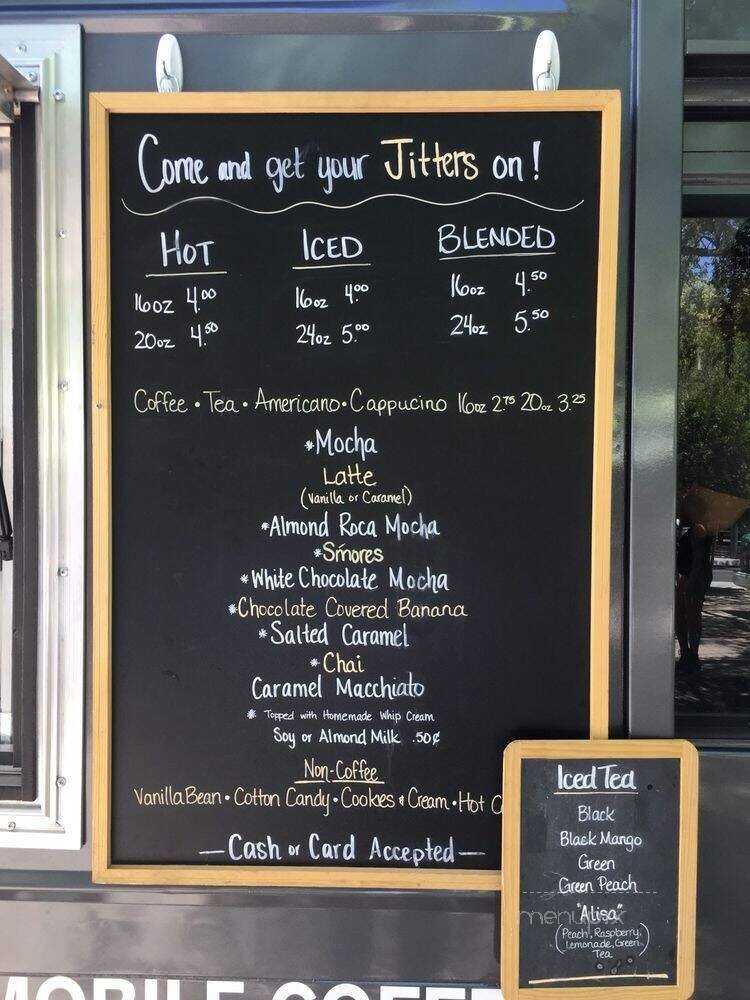 Come and get your Jitters on!
HOT ICED BLENDED
16oz 4.00 16oz 4.00 16oz 4.50
20oz 4.50 24oz 5.00 24oz 5.50
Coffee • Tea • Americano • Cappucino 16oz 2.75 20oz 3.25
*Mocha
Latte
(Vanilla or Caramel)
*Almond Roca Mocha
*S'mores
*White Chocolate Mocha
*Chocolate Covered Banana
*Salted Caramel
*Chai
Caramel Macchiato
* Topped with Homemade Whip Cream
Soy or Almond Milk .50¢
Non-Coffee
Vanilla Bean • Cotton Candy • Cookies & Cream • Hot C
—Cash or Card Accepted—
Iced Tea
Black
Black Mango
Green
Green Peach
"Alisa"
(Peach, Raspberry,
Lemonade, Green
Tea)
menupix
MOBILE COFFE